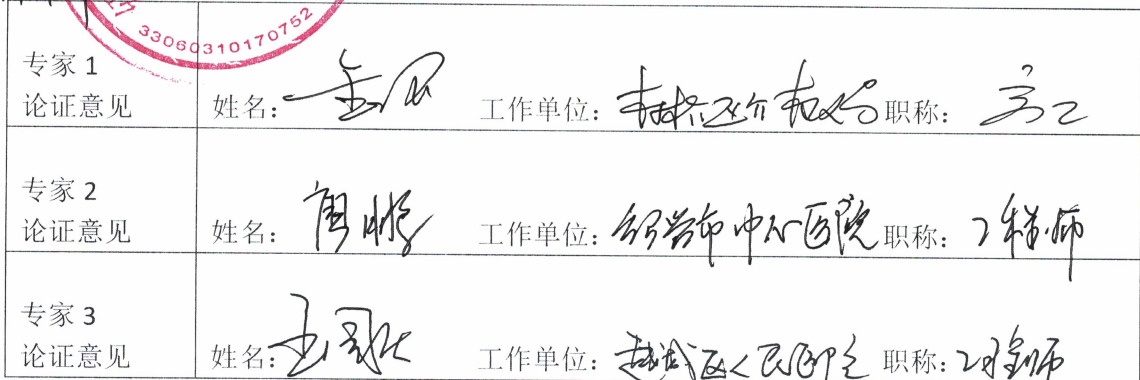 33060310170752
专家 1
论证意见 姓名: 工作单位: 职称: 高工
专家 2
论证意见 姓名: 周鹏 工作单位: 绍兴市中心医院 职称: 工程师
专家 3
论证意见 姓名: 工作单位: 越城区人民医院 职称: 工程师